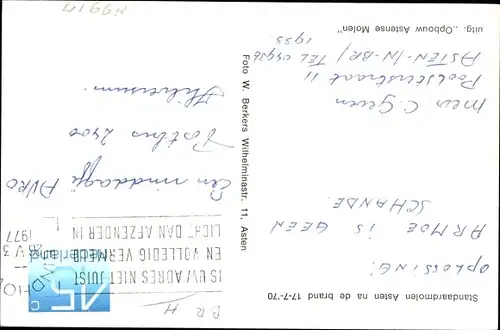 Standaardmolen Asten na de brand 17-7-70
OPLOSSING:
ARMOE IS GEEN
SCHANDE
Mevr C. Geven
Poelsenstraat 11
ASTEN-(N-BR) TEL 04936
1933
uitg. „Opbouw Astense Molen"
Foto W. Berkers Wilhelminastr. 11, Asten
45 C
nederland
IS UW ADRES NIET JUIST
EN VOLLEDIG VERMELD
LICHT DAN AFZENDER IN
1977
Een middagje AVRO
Postbus 2400
Hilversum.
BR
H